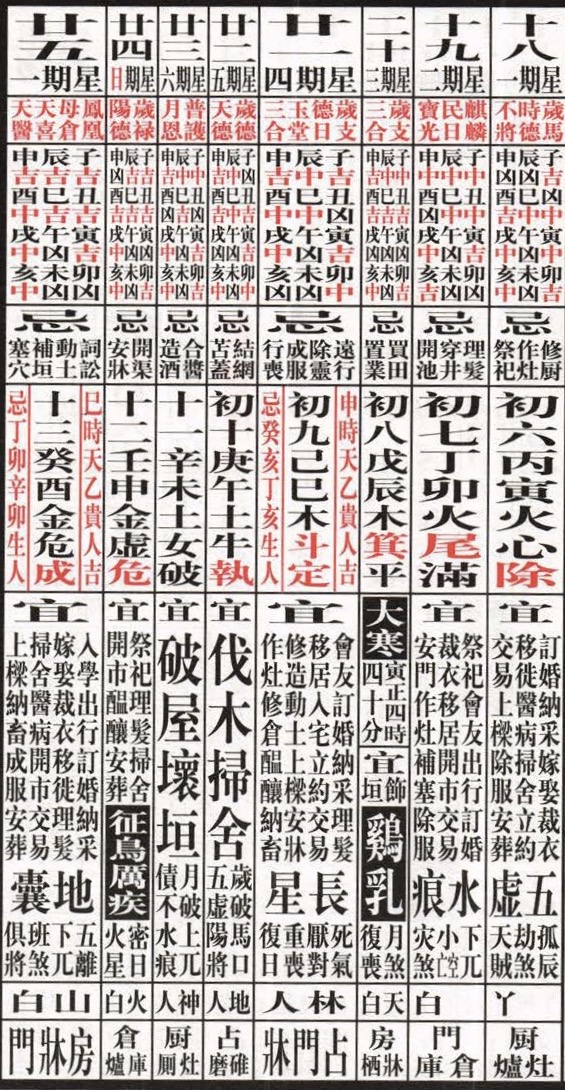 十八
星期一
歲馬
時德
不將
子丑寅卯
辰巳午未
申酉戌亥
忌
修厨
作灶
祭祀
初六丙寅火心除
宜
訂婚納采嫁娶裁衣
移徙醫病掃舍立約
交易上樑除服安葬
五虛
孤辰
劫煞
天賊
丫
厨灶爐
十九
星期二
麒麟
民日
寶光
子丑寅卯
辰巳午未
申酉戌亥
忌
理髮
穿井
開池
初七丁卯火尾滿
宜
祭祀會友出行訂婚
裁衣移居開市交易
安門作灶補塞除服
水痕
下兀
小空亡
災煞
白
門倉庫
二十
星期三
歲支
三合
子丑寅卯
辰巳午未
申酉戌亥
忌
買田
置業
初八戊辰木箕平
大寒
寅正四時
四十分
宜
飾垣
鷄乳
月煞
復喪
天白
房牀栖
廿一
星期四
歲支
德日
玉堂
三合
子吉丑凶寅吉卯中
辰中巳中午凶未凶
申中酉中戌中亥中
忌
遠行
除靈
成服
行喪
申時天乙貴人吉
初九己巳木斗定
忌癸亥丁亥生人
宜
會友訂婚納采理髮
移居入宅立約交易
修造動土上樑安牀
作灶修倉醞釀納畜
長星
死氣
厭對
重喪
復日
林人
占門牀
廿二
星期五
歲德
天德
子丑寅卯
辰巳午未
申酉戌亥
忌
結網
苫蓋
初十庚午土牛執
宜
伐木掃舍
歲破馬口
五虛陽將
地人
占碓磨
廿三
星期六
普護
月恩
子丑寅卯
辰巳午未
申酉戌亥
忌
合醬
造酒
十一辛未土女破
宜
破屋壞垣
月破上兀
債不水痕
神人
厨灶厠
廿四
星期日
歲祿
陽德
子丑寅卯
辰巳午未
申酉戌亥
忌
開渠
安牀
十二壬申金虛危
宜
祭祀理髮掃舍
開市醞釀安葬
征鳥厲疾
密日
火星
火白
倉庫爐
廿五
星期一
鳳凰
母倉
天喜
天醫
子吉丑吉寅吉卯凶
辰吉巳吉午凶未凶
申吉酉中戌中亥中
忌
詞訟
動土
補垣
塞穴
巳時天乙貴人吉
十三癸酉金危成
忌丁卯辛卯生人
宜
入學出行訂婚納采
嫁娶裁衣移徙理髮
掃舍醫病開市交易
上樑納畜成服安葬
地囊
五離
下兀
班煞
俱將
山白
房牀門